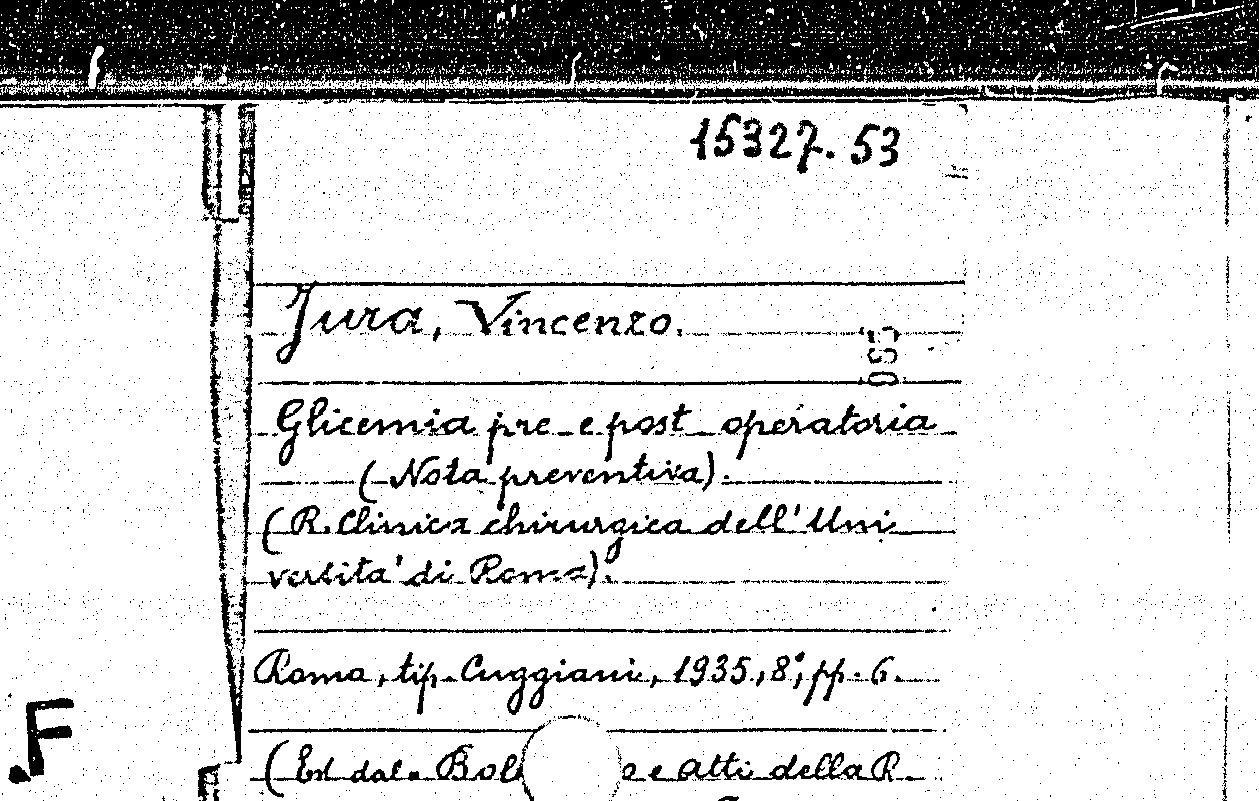 15327.53
Jura, Vincenzo.
Glicemia pre e post operatoria
(Nota preventiva).
(R. Clinica chirurgica dell' Uni
versita' di Roma).
Roma, tip. Cuggiani, 1935, 8°, pp. 6.
(Est. dal. e Atti della R.
.F